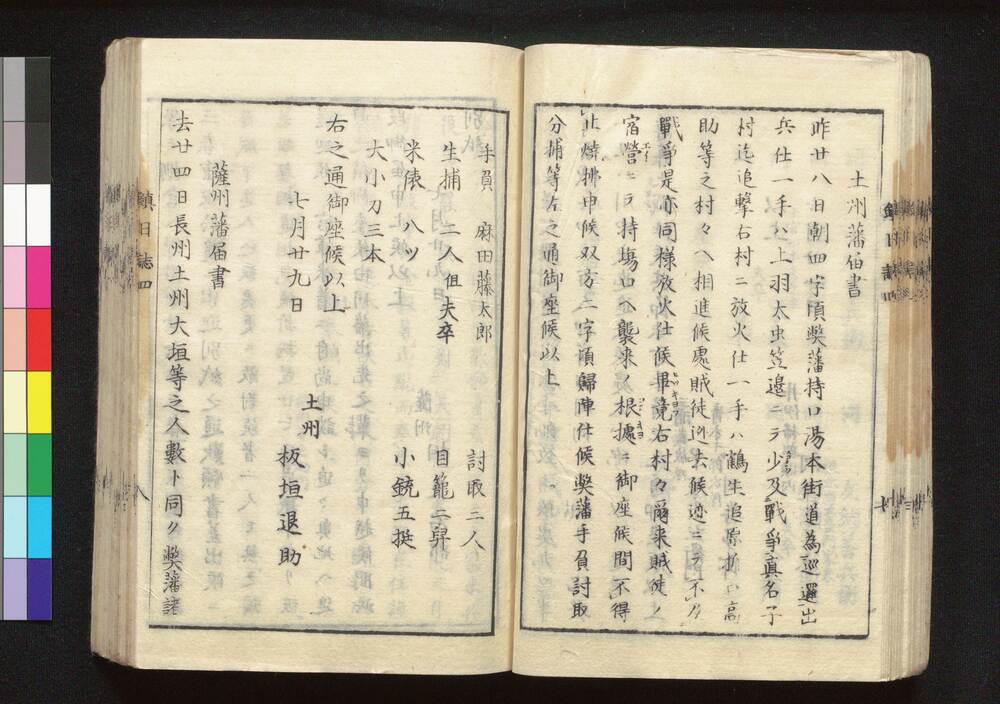 土州藩届書
昨廿八日朝四字頃弊藩持口湯本街道為巡邏出
兵仕一手ハ上羽太虫笠邊ニテ少及戰爭真名子
村迄追撃右村ニ放火仕一手ハ鶴生追原折口高
助等之村々ヘ相進候處賊徒迯去候迹ニテ不及
戰爭是亦同様放火仕候畢竟右村々爾来賊徒ノ
宿營ニテ持塲口ヘ襲来ノ根據ニ御座候間不得
止燒拂申候双方二字頃歸陣仕候弊藩手負討取
分捕等左之通御座候以上
手負　麻田藤太郎　討取二人
生捕　二人但夫卒　目籠二舁
米俵　八ツ　小銃五挺
大小刀三本
右之通御座候以上
七月廿九日　土州　板垣退助
薩州藩届書
去廿四日長州土州大垣等之人數ト同ク弊藩諸
鎮日誌四
七
鎮日誌四
八